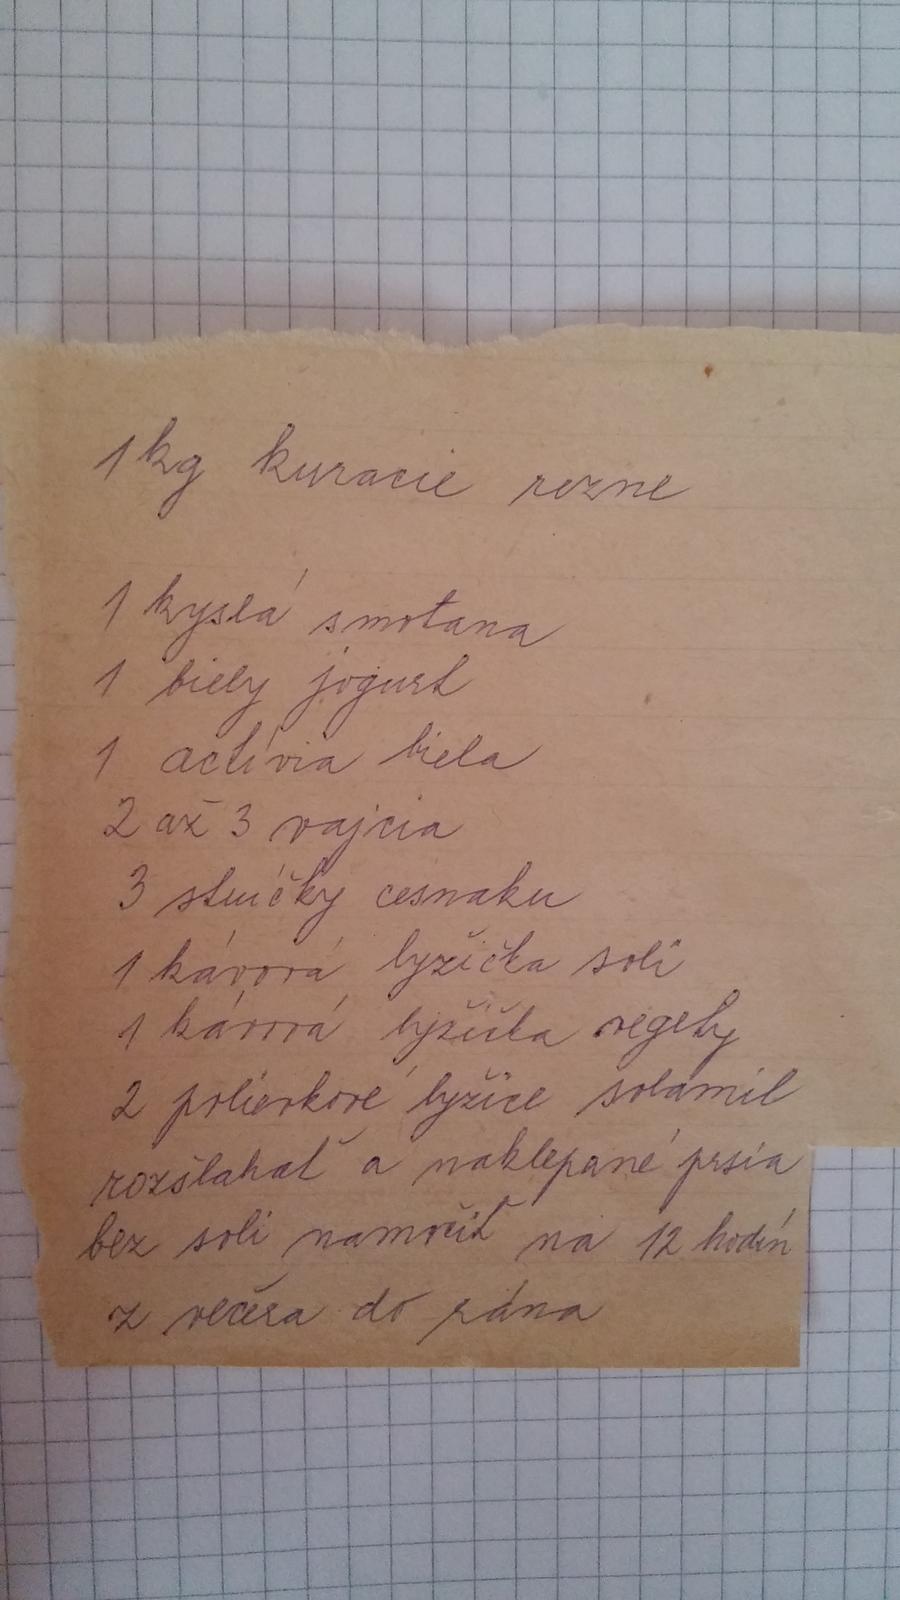 1 kg kuracie rezne
1 kyslá smotana
1 biely jogurt
1 actívia biela
2 až 3 vajcia
3 stručky cesnaku
1 kávová lyžička soli
1 kávová lyžička vegety
2 polievkové lyžice solamil
rozšlahať a naklepané prsia
bez soli namočiť na 12 hodín
z večera do rána